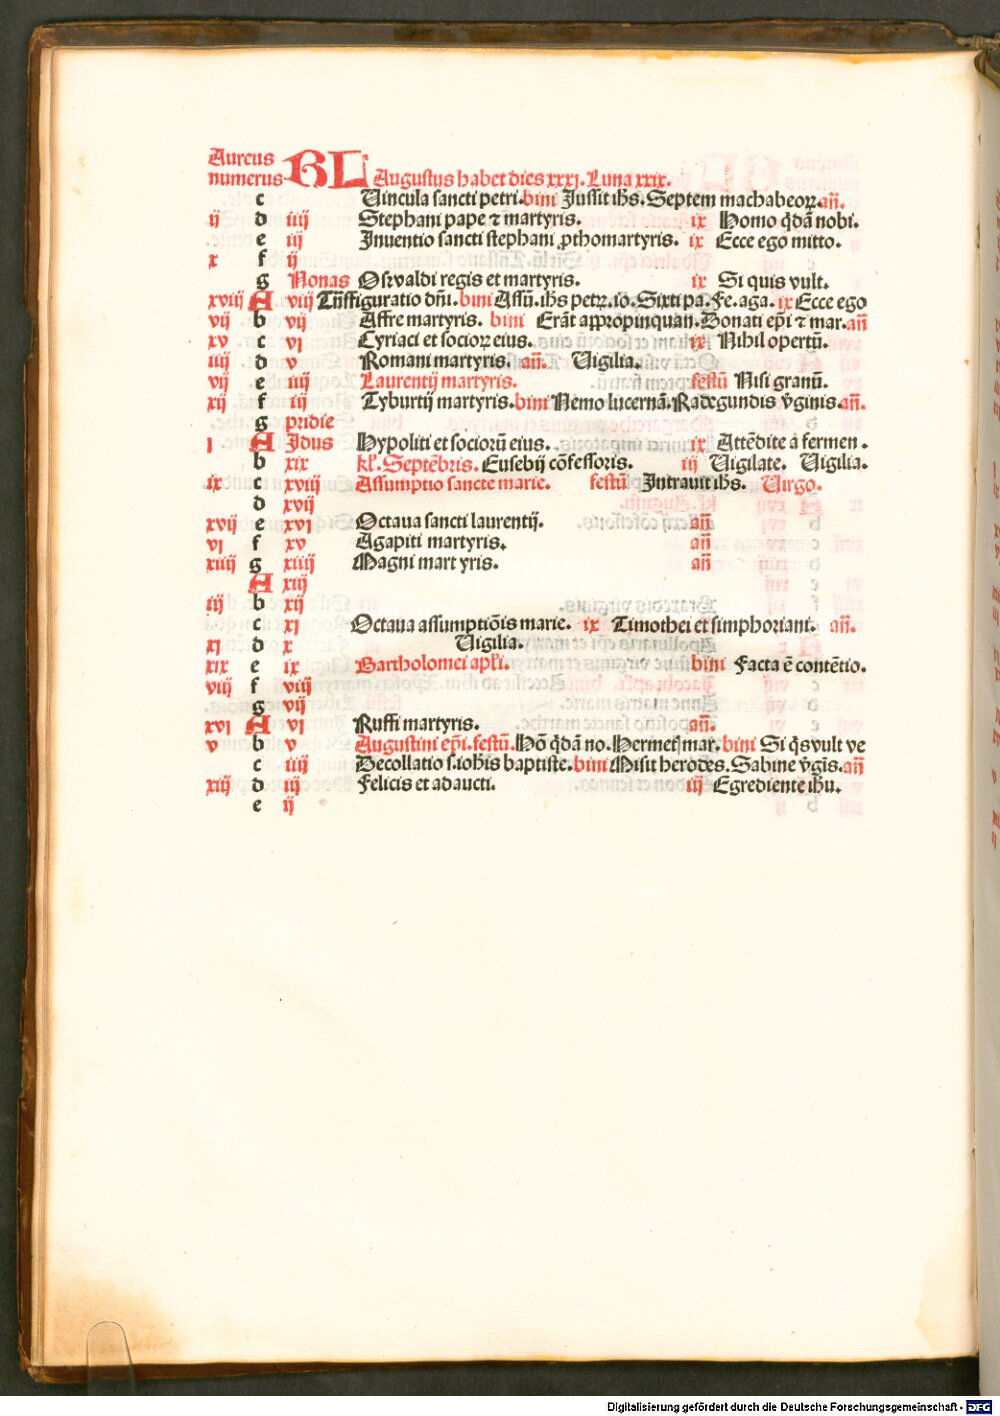 Aureus
numerus KL Augustus habet dies xxxj. Luna xxix.
c Uincula sancti petri. bini Jussit ihs. Septem machabeoꝝ. añ.
ij d iiij Stephani pape ⁊ martyris. ix Homo qdā nobi.
e iij Inuentio sancti stephani ꝓthomartyris. ix Ecce ego mitto.
x f ij
g Nonas Oswaldi regis et martyris. ix Si quis vult.
xviij A viij Trāsfiguratio dñi. bini Assū. ihs petꝝ. io. Sixti pa. Fe. aga. ix Ecce ego
vij b vij Affre martyris. bini Erāt appropinquan. Donati epi ⁊ mar. añ
xv c vj Cyriaci et socioꝝ eius. ix Nihil opertū.
iiij d v Romani martyris. añ. Uigilia.
vij e iiij Laurentij martyris. festū Nisi granū.
xij f iij Tyburtij martyris. bini Nemo lucernā. Radegundis v̄ginis. añ.
g pridie
j A Idus Hypoliti et sociorū eius. ix Attēdite a fermen.
b xix kl. Septēbris. Eusebij cōfessoris. iij Uigilate. Uigilia.
ix c xviij Assumptio sancte marie. festū Intrauit ihs. Uirgo.
d xvij
xvij e xvj Octaua sancti laurentij. añ
vj f xv Agapiti martyris. añ
xiiij g xiiij Magni martyris. añ
A xiij
iij b xij
c xj Octaua assumptiōis marie. ix Timothei et simphoriani. añ.
xj d x Uigilia.
xix e ix Bartholomei apli. bini Facta ē contētio.
viij f viij
g vij
xvj A vj Ruffi martyris. añ.
v b v Augustini epi. festū. Hō qdā no. Hermetꝭ mar. bini Si qs vult ve
c iiij Decollatio s. iohis baptiste. bini Misit herodes. Sabine v̄gis. añ
xiij d iij Felicis et adaucti. iij Egrediente ihu.
e ij
Digitalisierung gefördert durch die Deutsche Forschungsgemeinschaft - DFG